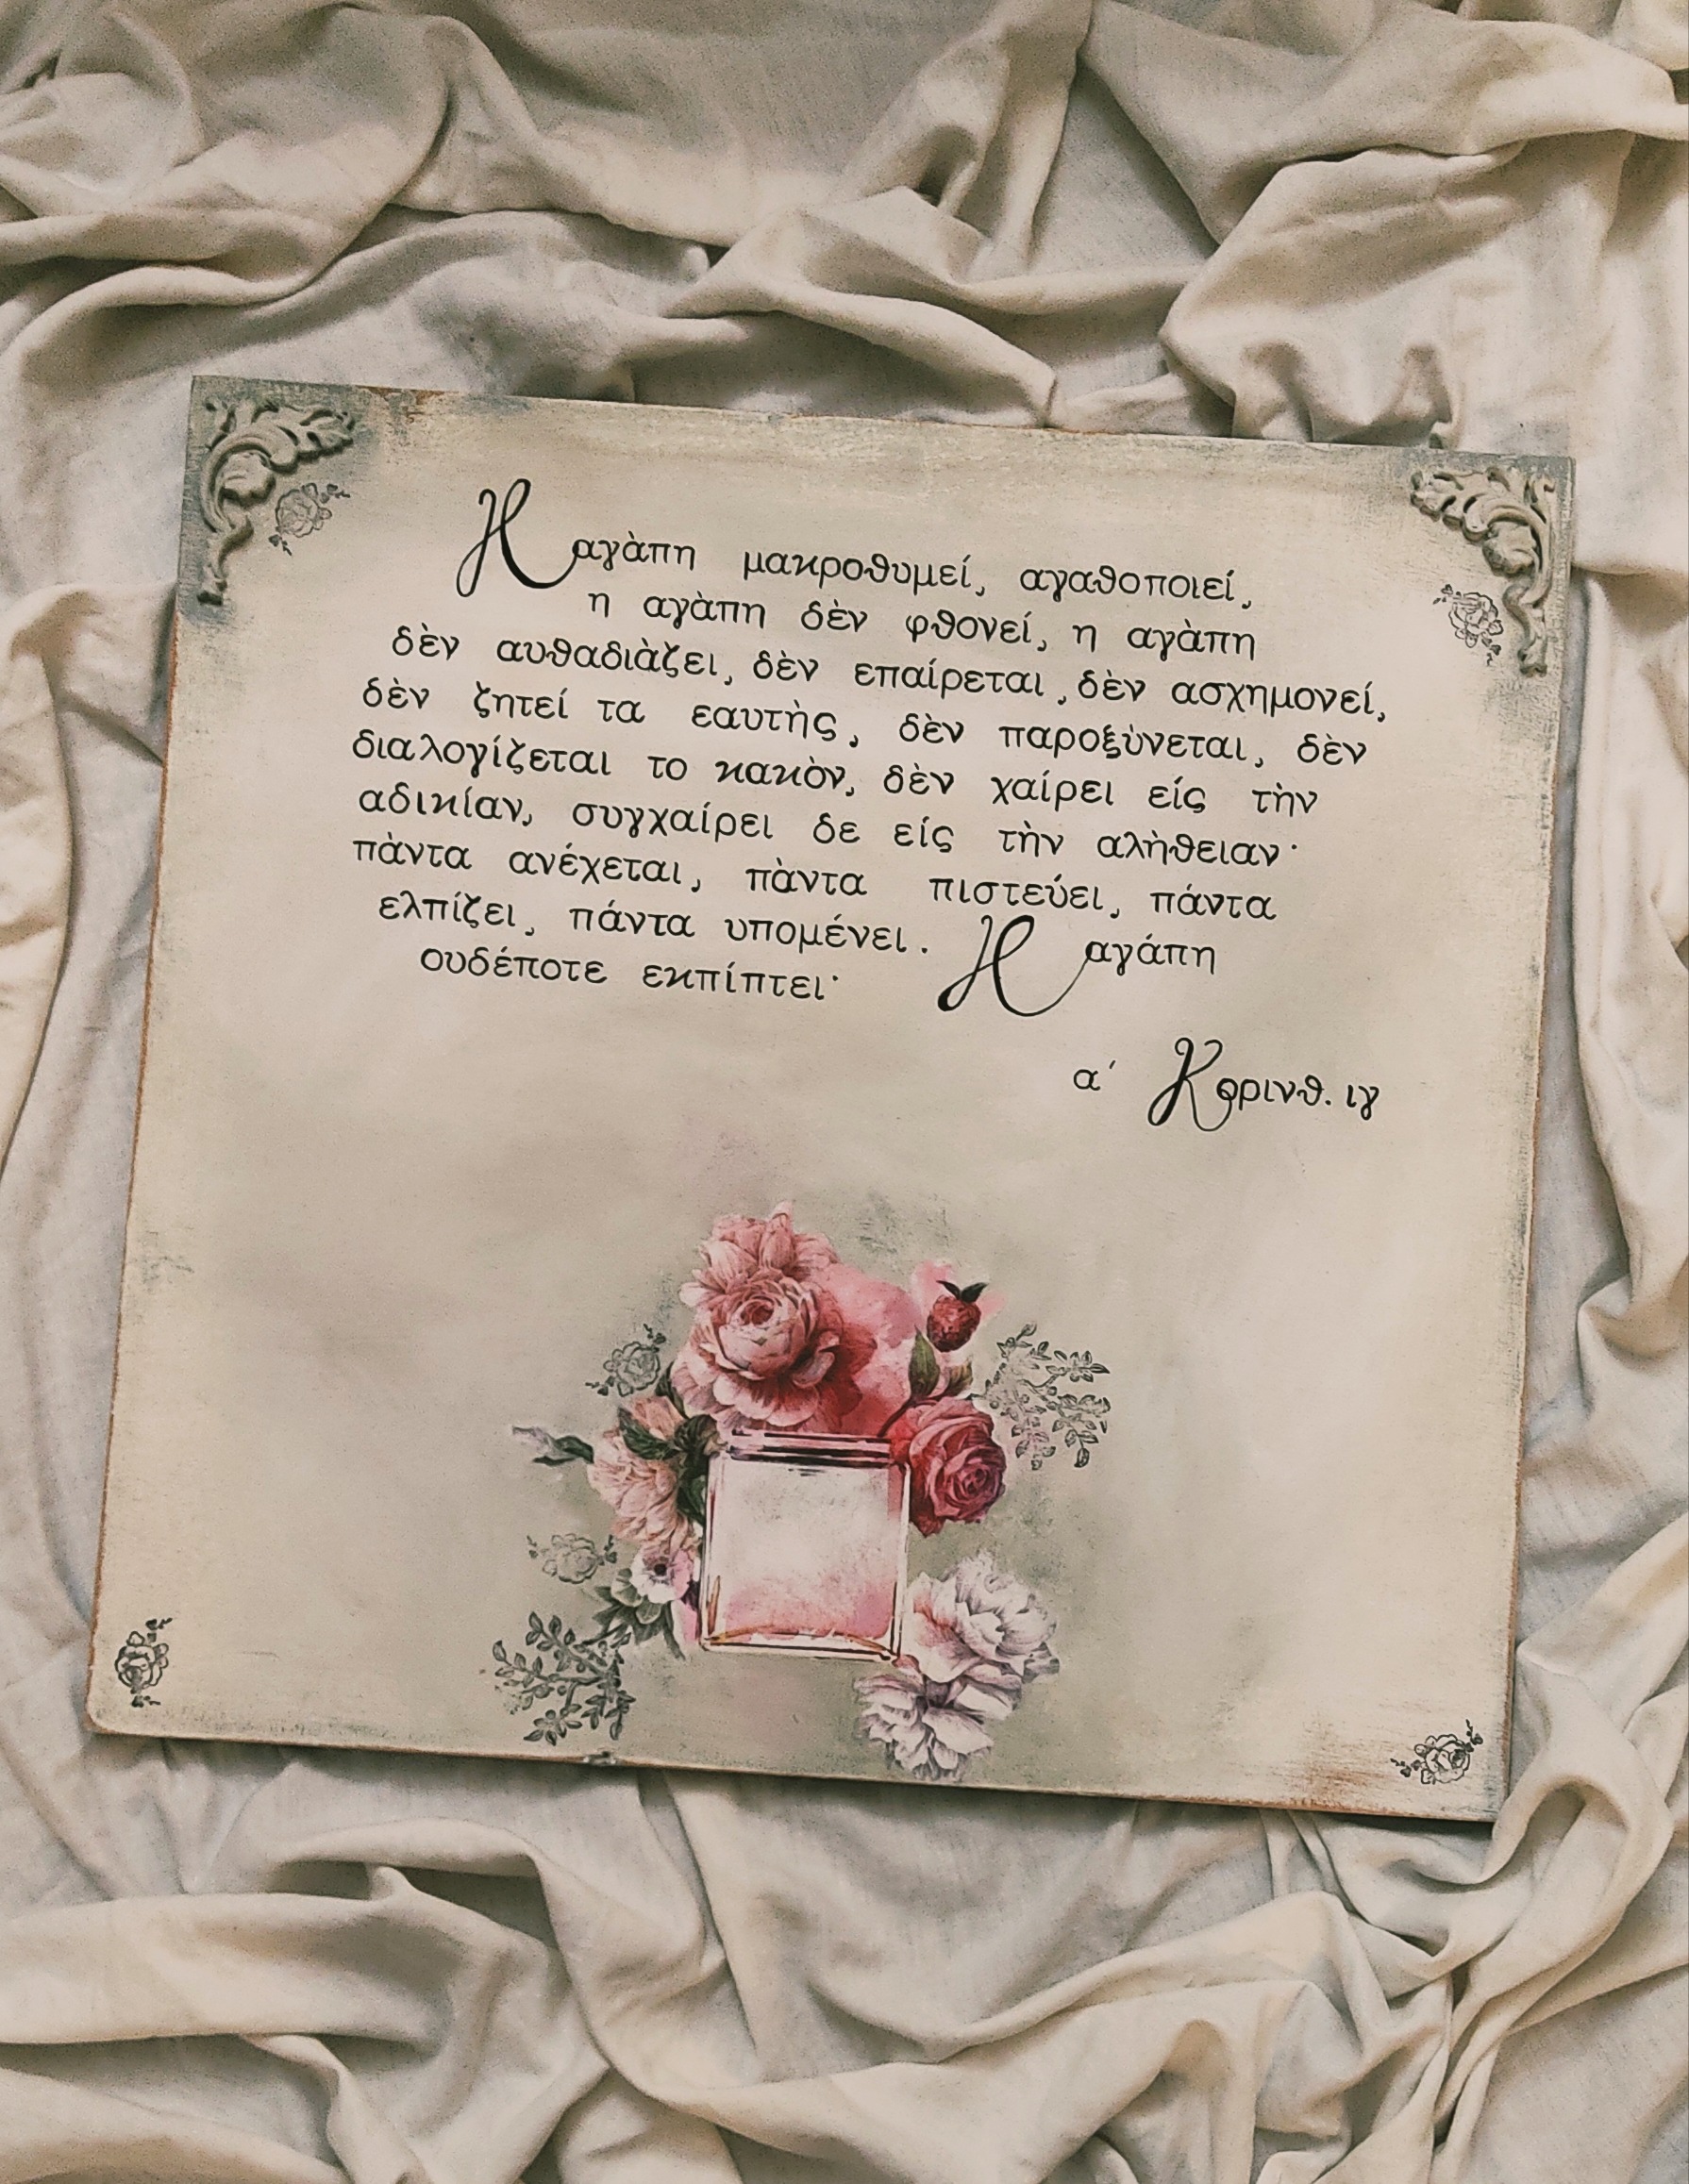 Η αγὰπη μακροθυμεί, αγαθοποιεί,
η αγὰπη δὲν φθονεί, η αγὰπη
δὲν αυθαδιὰζει, δὲν επαίρεται, δὲν ασχημονεί,
δὲν ζητεί τα εαυτὴς, δὲν παροξὺνεται, δὲν
διαλογίζεται το κακὸν, δὲν χαίρει είς τὴν
αδικίαν, συγχαίρει δε είς τὴν αλὴθειαν·
πὰντα ανέχεται, πὰντα πιστεύει, πάντα
ελπίζει, πάντα υπομένει. Η αγάπη
ουδέποτε εκπίπτει·
α΄ Κορινθ. ιγ